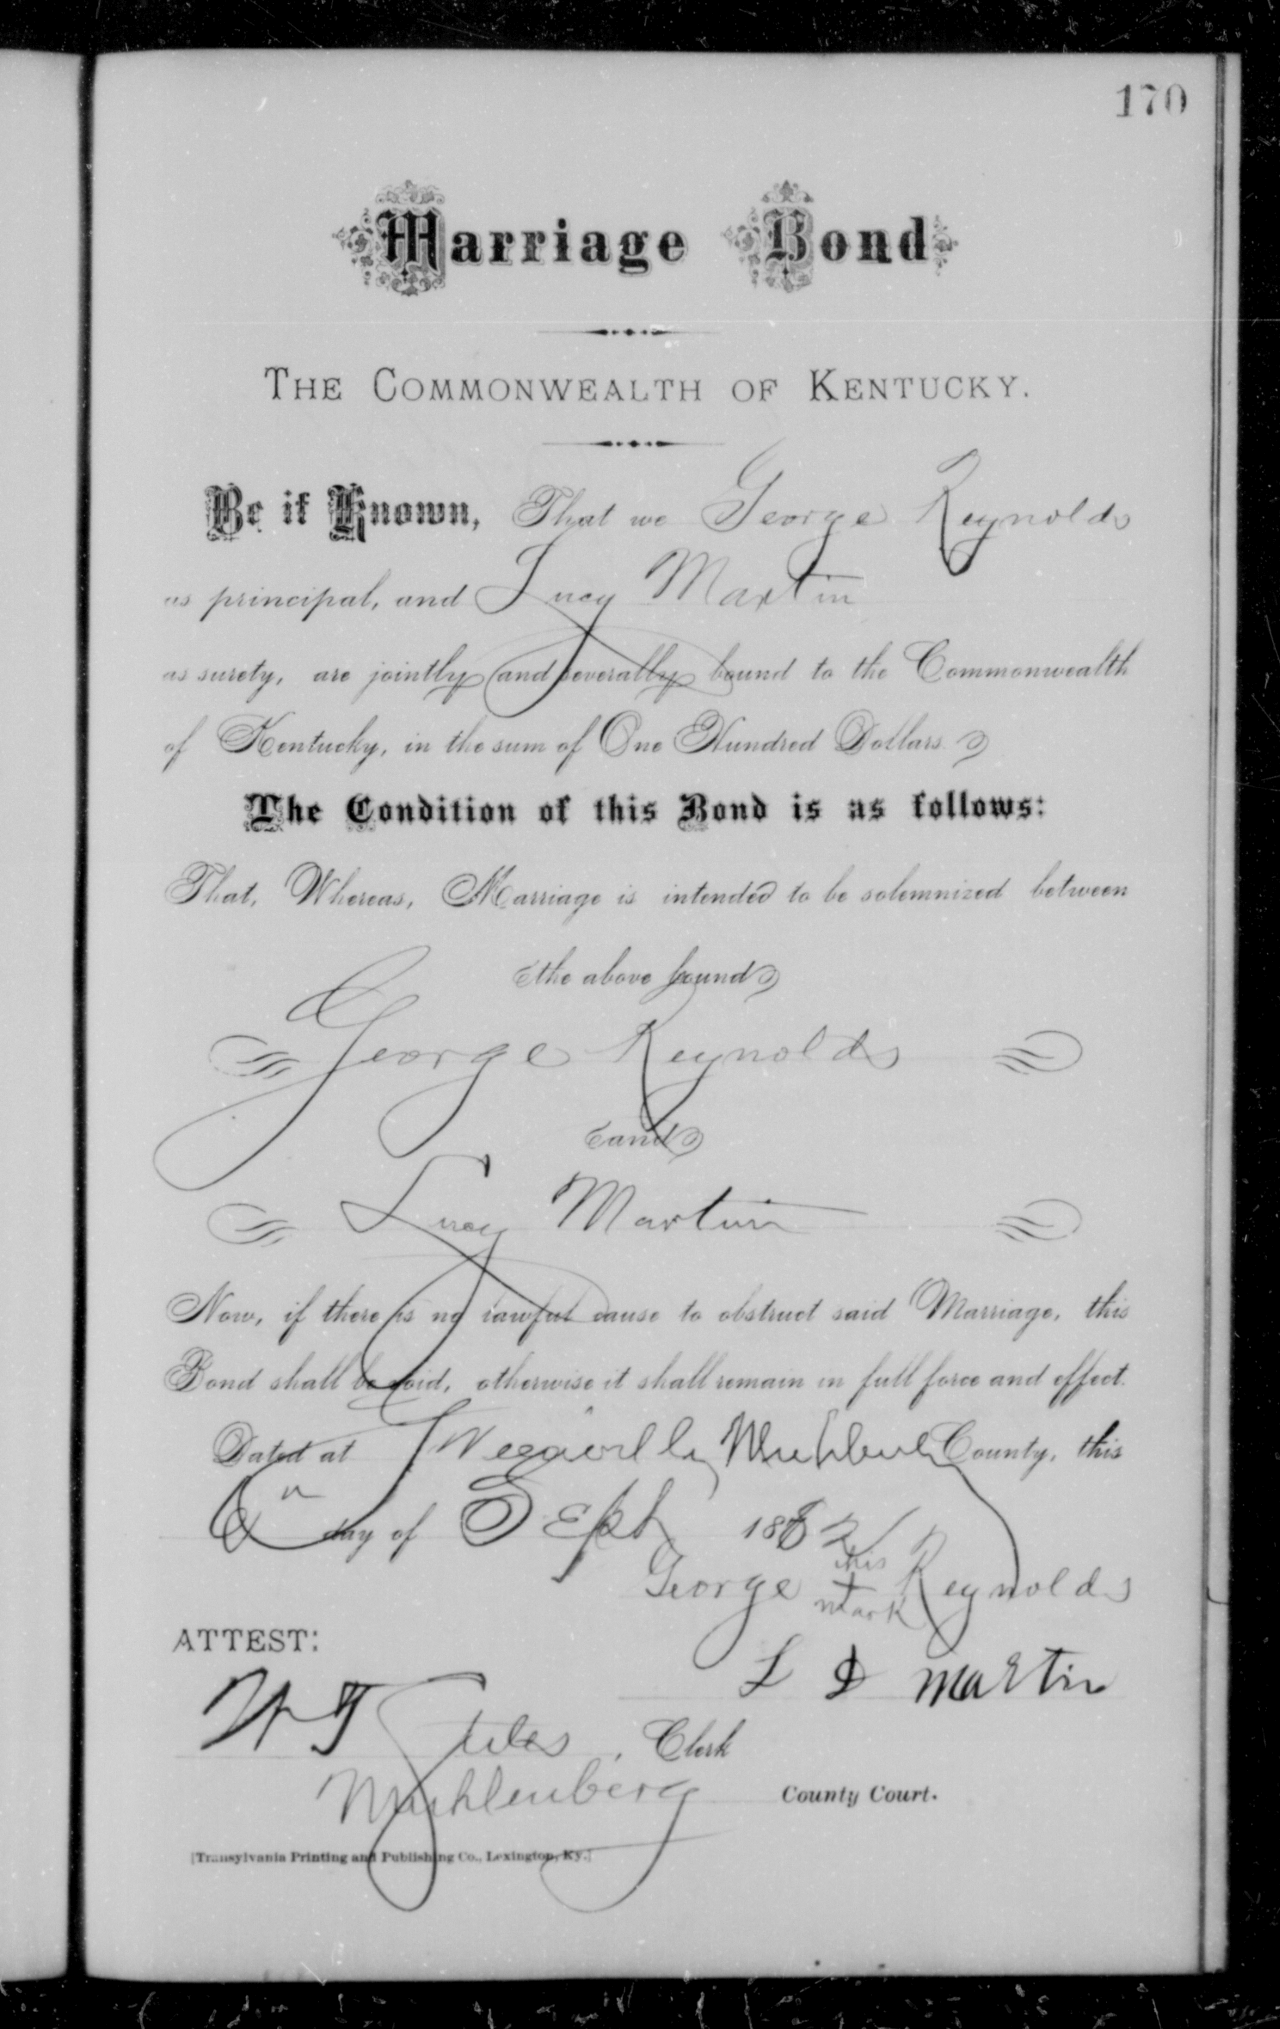 170
Marriage Bond
THE COMMONWEALTH OF KENTUCKY.
Be it Known, That we George Reynolds
as principal, and Lucy Martin
as surety, are jointly and severally bound to the Commonwealth
of Kentucky, in the sum of One Hundred Dollars.
The Condition of this Bond is as follows:
That, Whereas, Marriage is intended to be solemnized between
the above bound
George Reynolds
and
Lucy Martin
Now, if there is no lawful cause to obstruct said Marriage, this
Bond shall be void, otherwise it shall remain in full force and effect.
Dated at County, this
day of Sept 1882
his
George + Reynolds
mark
ATTEST:
L D Martin
Clerk
Muhlenberg County Court.
[Transylvania Printing and Publishing Co., Lexington, Ky.]